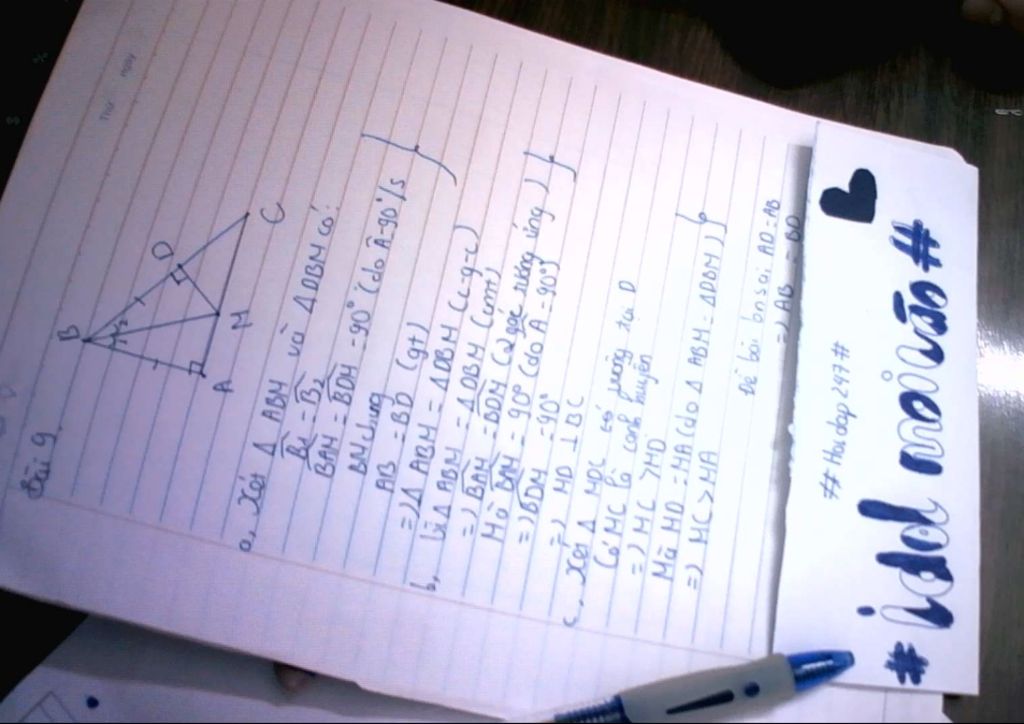 Thứ ngày
Bài 9
B
1 2
D
A
M
C
a, Xét Δ ABM và Δ DBM có:
B1 = B2
BAM = BDM = 90° (do A = 90°)
BM chung
AB = BD (gt)
=) Δ ABM = Δ DBM (c-g-c)
b, Vì Δ ABM = Δ DBM (cmt)
=) BAM = BDM (2 góc tương ứng)
Mà BAM = 90° (do A = 90°)
=) BDM = 90°
=) MD ⊥ BC
c, Xét Δ MDC có vuông tại D
Có MC là cạnh huyền
=) MC > MD
Mà MD = MA (do Δ ABM = Δ DBM)
=) MC > MA
Đề bài bn sai AD = AB
=) AB = BD
## Hoidap247 #
# idol mới vào #